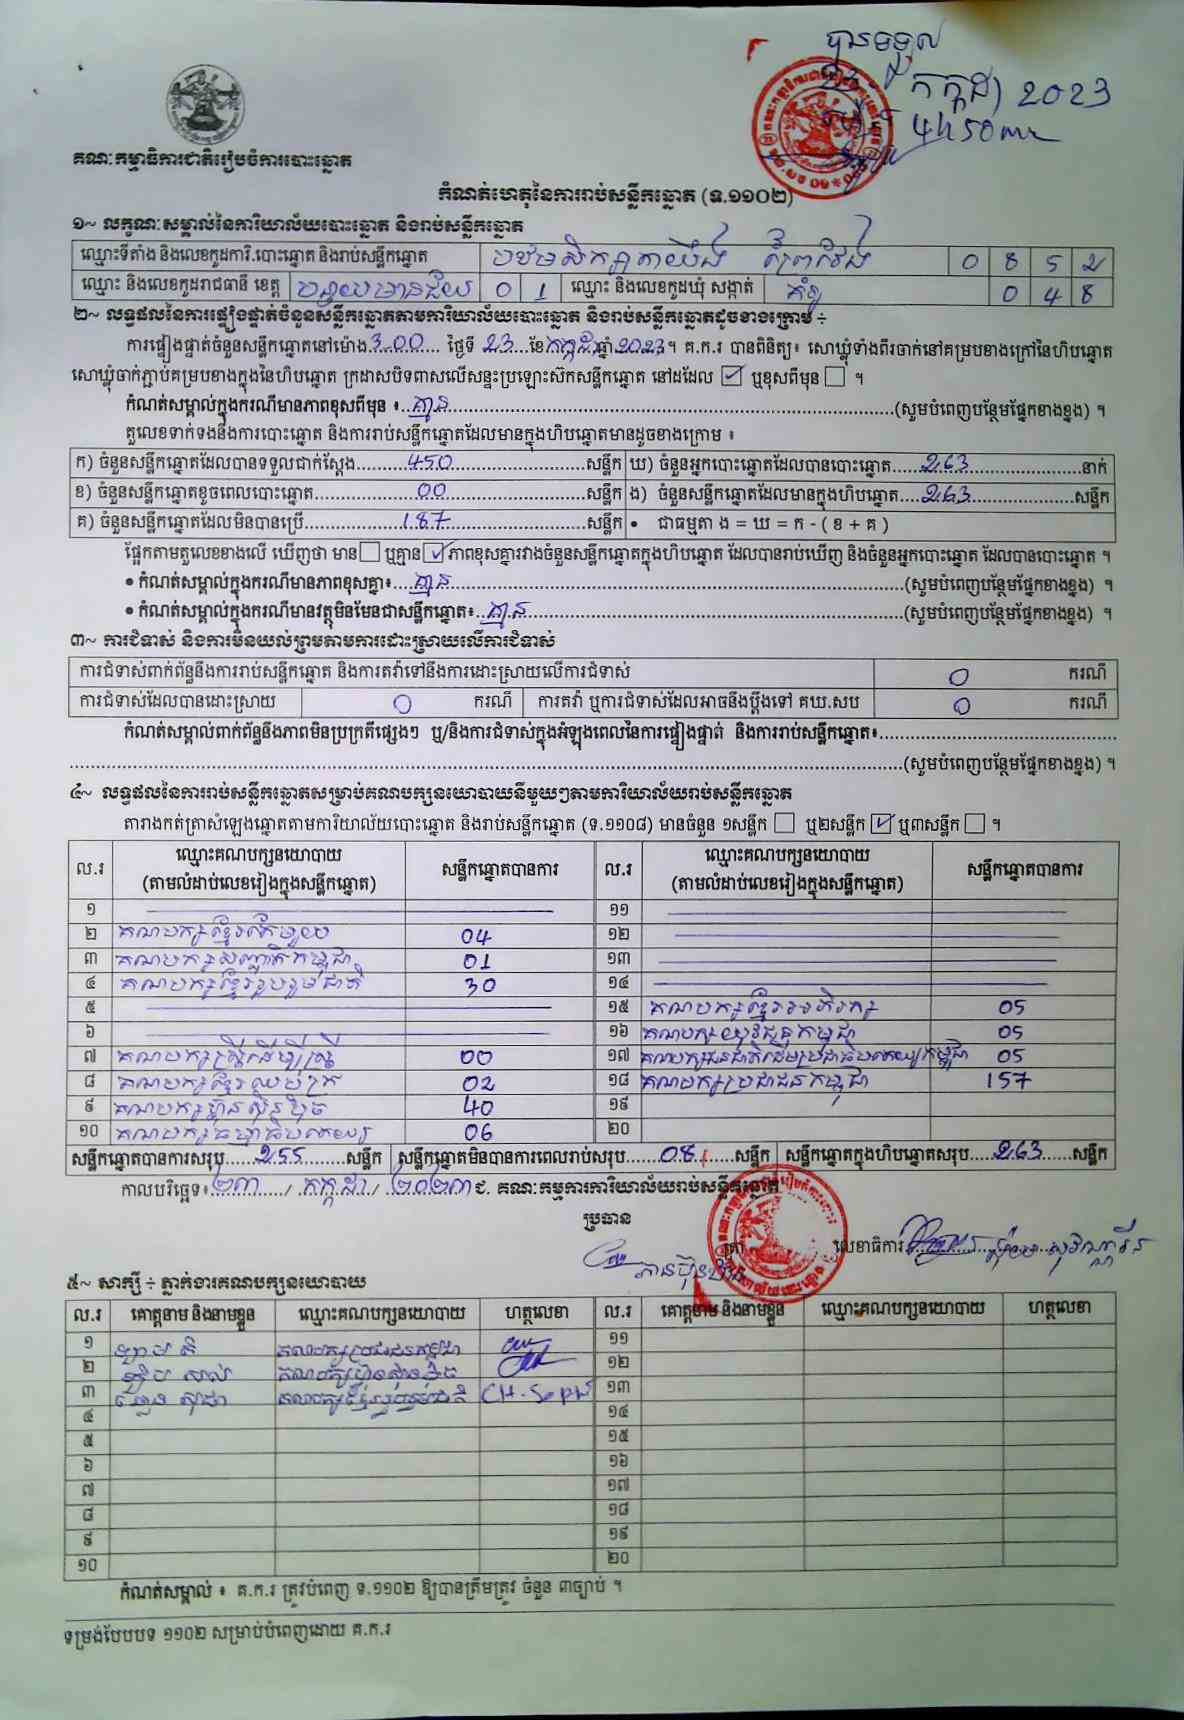 បានទទួល
23 កក្កដា 2023
ម៉ោង 4h50mn
គណៈកម្មាធិការជាតិរៀបចំការបោះឆ្នោត
កំណត់ហេតុនៃការរាប់សន្លឹកឆ្នោត (ទ.១១០២)
១~ លក្ខណៈសម្គាល់នៃការិយាល័យបោះឆ្នោត និងរាប់សន្លឹកឆ្នោត
ឈ្មោះទីតាំង និងលេខកូដការិ.បោះឆ្នោត និងរាប់សន្លឹកឆ្នោត បឋមសិក្សា 0 8 5 2
ឈ្មោះ និងលេខកូដរាជធានី ខេត្ត បន្ទាយមានជ័យ 0 1 ឈ្មោះ និងលេខកូដឃុំ សង្កាត់ 0 4 8
២~ លទ្ធផលនៃការផ្ទៀងផ្ទាត់ចំនួនសន្លឹកឆ្នោតតាមការិយាល័យបោះឆ្នោត និងរាប់សន្លឹកឆ្នោតដូចខាងក្រោម ÷
ការផ្ទៀងផ្ទាត់ចំនួនសន្លឹកឆ្នោតនៅម៉ោង 3:00 ថ្ងៃទី 23 ខែ កក្កដា ឆ្នាំ 2023 ។ គ.ក.រ បានពិនិត្យ៖ សោឃ្លុំទាំងពីរចាក់នៅគម្របខាងក្រៅនៃហិបឆ្នោត
សោឃ្លុំចាក់ភ្ជាប់គម្របខាងក្នុងនៃហិបឆ្នោត ក្រដាសបិទពាសលើសន្ទះប្រឡោះស៊កសន្លឹកឆ្នោត នៅដដែល ☑ ឬខុសពីមុន ☐ ។
កំណត់សម្គាល់ក្នុងករណីមានភាពខុសពីមុន ៖ គ្មាន (សូមបំពេញបន្ថែមផ្នែកខាងខ្នង) ។
តួលេខទាក់ទងនឹងការបោះឆ្នោត និងការរាប់សន្លឹកឆ្នោតដែលមានក្នុងហិបឆ្នោតមានដូចខាងក្រោម ៖
ក) ចំនួនសន្លឹកឆ្នោតដែលបានទទួលជាក់ស្តែង 450 សន្លឹក ឃ) ចំនួនអ្នកបោះឆ្នោតដែលបានបោះឆ្នោត 263 នាក់
ខ) ចំនួនសន្លឹកឆ្នោតខូចពេលបោះឆ្នោត 00 សន្លឹក ង) ចំនួនសន្លឹកឆ្នោតដែលមានក្នុងហិបឆ្នោត 263 សន្លឹក
គ) ចំនួនសន្លឹកឆ្នោតដែលមិនបានប្រើ 187 សន្លឹក • ជាធម្មតា ង = ឃ = ក - ( ខ + គ )
ផ្អែកតាមតួលេខខាងលើ ឃើញថា មាន ☐ ឬគ្មាន ☑ ភាពខុសគ្នារវាងចំនួនសន្លឹកឆ្នោតក្នុងហិបឆ្នោត ដែលបានរាប់ឃើញ និងចំនួនអ្នកបោះឆ្នោត ដែលបានបោះឆ្នោត ។
• កំណត់សម្គាល់ក្នុងករណីមានភាពខុសគ្នា៖ គ្មាន (សូមបំពេញបន្ថែមផ្នែកខាងខ្នង) ។
• កំណត់សម្គាល់ក្នុងករណីមានវត្ថុមិនមែនជាសន្លឹកឆ្នោត៖ គ្មាន (សូមបំពេញបន្ថែមផ្នែកខាងខ្នង) ។
៣~ ការជំទាស់ និងការមិនយល់ព្រមតាមការដោះស្រាយលើការជំទាស់
ការជំទាស់ពាក់ព័ន្ធនឹងការរាប់សន្លឹកឆ្នោត និងការតវ៉ាទៅនឹងការដោះស្រាយលើការជំទាស់ 0 ករណី
ការជំទាស់ដែលបានដោះស្រាយ 0 ករណី ការតវ៉ា ឬការជំទាស់ដែលអាចនឹងប្តឹងទៅ គឃ.សប 0 ករណី
កំណត់សម្គាល់ពាក់ព័ន្ធនឹងភាពមិនប្រក្រតីផ្សេងៗ ឬ/និងការជំទាស់ក្នុងអំឡុងពេលនៃការផ្ទៀងផ្ទាត់ និងការរាប់សន្លឹកឆ្នោត៖
(សូមបំពេញបន្ថែមផ្នែកខាងខ្នង) ។
៤~ លទ្ធផលនៃការរាប់សន្លឹកឆ្នោតសម្រាប់គណបក្សនយោបាយនីមួយៗតាមការិយាល័យរាប់សន្លឹកឆ្នោត
តារាងកត់ត្រាសំឡេងឆ្នោតតាមការិយាល័យបោះឆ្នោត និងរាប់សន្លឹកឆ្នោត (ទ.១១០៨) មានចំនួន ១សន្លឹក ☐ ឬ២សន្លឹក ☑ ឬ៣សន្លឹក ☐ ។
ល.រ ឈ្មោះគណបក្សនយោបាយ (តាមលំដាប់លេខរៀងក្នុងសន្លឹកឆ្នោត) សន្លឹកឆ្នោតបានការ ល.រ ឈ្មោះគណបក្សនយោបាយ (តាមលំដាប់លេខរៀងក្នុងសន្លឹកឆ្នោត) សន្លឹកឆ្នោតបានការ
១ ១១
២ គណបក្សខ្មែរតែមួយ 04 ១២
៣ គណបក្សសញ្ជាតិកម្ពុជា 01 ១៣
៤ គណបក្សខ្មែររួបរួមជាតិ 30 ១៤
៥ ១៥ គណបក្សខ្មែរអភិរក្ស 05
៦ ១៦ គណបក្សយុវជនកម្ពុជា 05
៧ គណបក្សស្ត្រីដើម្បីស្ត្រី 00 ១៧ គណបក្សជនជាតិដើមប្រជាធិបតេយ្យកម្ពុជា 05
៨ គណបក្សខ្មែរឈប់ក្រ 02 ១៨ គណបក្សប្រជាជនកម្ពុជា 157
៩ គណបក្សហ៊្វុនស៊ិនប៉ិច 40 ១៩
១០ គណបក្សធម្មាធិបតេយ្យ 06 ២០
សន្លឹកឆ្នោតបានការសរុប 255 សន្លឹក សន្លឹកឆ្នោតមិនបានការពេលរាប់សរុប 08 សន្លឹក សន្លឹកឆ្នោតក្នុងហិបឆ្នោតសរុប 263 សន្លឹក
កាលបរិច្ឆេទ៖ ២៣ / កក្កដា / ២០២៣ ៩. គណៈកម្មការការិយាល័យរាប់សន្លឹកឆ្នោត
ប្រធាន
លេខាធិការ
៥~ សាក្សី ÷ ភ្នាក់ងារគណបក្សនយោបាយ
ល.រ គោត្តនាម និងនាមខ្លួន ឈ្មោះគណបក្សនយោបាយ ហត្ថលេខា ល.រ គោត្តនាម និងនាមខ្លួន ឈ្មោះគណបក្សនយោបាយ ហត្ថលេខា
១ គណបក្សប្រជាជនកម្ពុជា ១១
២ គណបក្សហ៊្វុនស៊ិនប៉ិច ១២
៣ គណបក្សខ្មែររួបរួមជាតិ ១៣
៤ ១៤
៥ ១៥
៦ ១៦
៧ ១៧
៨ ១៨
៩ ១៩
១០ ២០
កំណត់សម្គាល់ ៖ គ.ក.រ ត្រូវបំពេញ ទ.១១០២ ឱ្យបានត្រឹមត្រូវ ចំនួន ៣ច្បាប់ ។
ទម្រង់បែបបទ ១១០២ សម្រាប់បំពេញដោយ គ.ក.រ